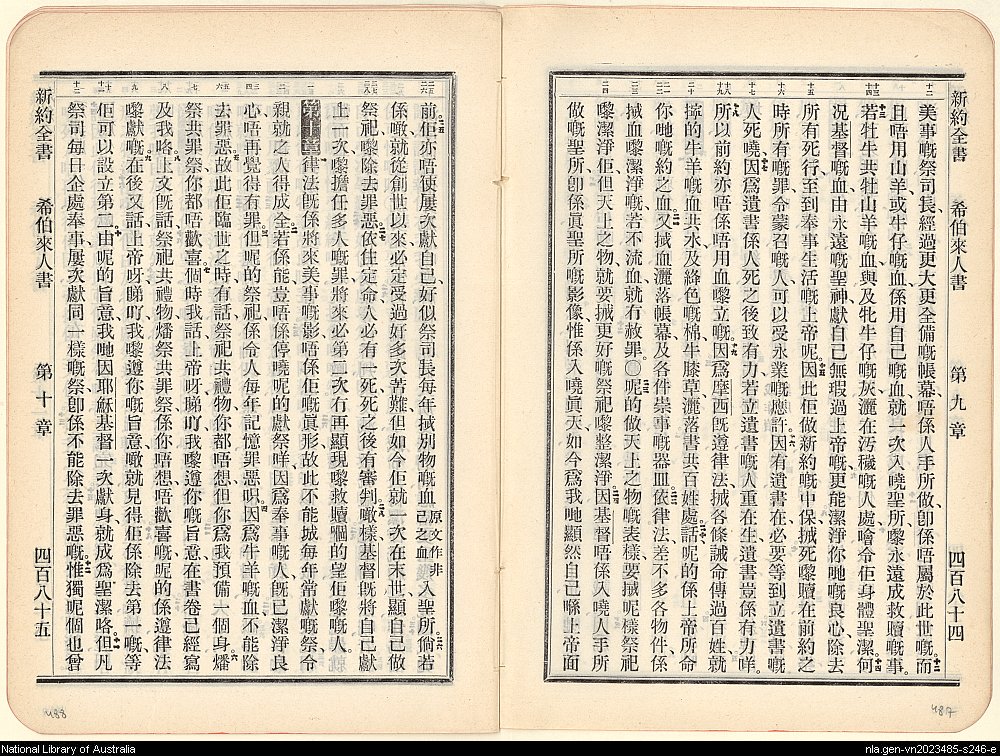 新約全書 希伯來人書 第九章 四百八十四
美事嘅祭司長、經過更大更全備嘅帳幕唔係人手所做卽係唔屬於此世嘅。而
且唔用山羊或牛仔嘅血係用自己嘅血就一次入嘵聖所嚟永遠成救贖嘅事。
若牡牛共牡山羊嘅血與及牝牛仔嘅灰灑在汚穢嘅人處噲令佢身體聖潔何
况基督嘅血由永遠嘅聖神獻自己無瑕過上帝嘅更能潔淨你哋嘅良心除去
所有死行、至到奉事生活嘅上帝呢。因此佢做新約嘅中保搣死嚟贖在前約之
時所有嘅罪令蒙召嘅人可以受永業嘅應許。因有遺書嘅在必要等到立遺書嘅
人死嘵。因爲遺書係人死之後致有力若立遺書嘅人重在生遺書豈係有力咩。
所以前約亦唔係唔用血嚟立嘅。因爲摩西旣遵律法搣各條誡命傳過百姓就
擰的牛羊嘅血共水及絳色嘅棉牛膝草灑落書共百姓處。話呢的係上帝所命
你哋嘅約之血。又搣血灑落帳幕及各件崇事嘅器皿。依律法差不多各物件係
搣血嚟潔淨嘅若不流血就冇赦罪。〇呢的做天上之物嘅表樣要搣呢樣祭祀
嚟潔淨佢但天上之物就要搣更好嘅祭祀嚟整潔淨。因基督唔係入嘵人手所
做嘅聖所卽係眞聖所嘅影像惟係入嘵眞天如今爲我哋顯然自己喺上帝面
前。佢亦唔使屢次獻自己、好似祭司長每年搣別物嘅血原文作非己之血入聖所。倘若
係噉、就從創世以來必定受過好多次苦難但如今佢就一次在末世顯自己做
祭祀、嚟除去罪惡。依住定命人必有一死死之後有審判。噉樣基督旣將自己獻
上一次嚟擔任多人嘅罪將來必第二次冇再顯現嚟救贖𠻹的望佢嚟嘅人
第十章律法旣係將來美事嘅影唔係佢嘅眞形故此不能搣每年常獻嘅祭令
親就之人得成全。若係能豈唔係停嘵呢的獻祭咩因爲奉事嘅人旣已潔淨良
心唔再覺得有罪。但呢的祭祀係令人每年記憶罪惡呮。因爲牛羊嘅血不能除
去罪惡。故此佢臨世之時有話祭祀共禮物你都唔想但你爲我預備一個身。燔
祭共罪祭你都唔歡喜。個時我話上帝呀睇吖我嚟遵你嘅旨意在書卷已經寫
及我咯。上文旣話祭祀共禮物燔祭共罪祭係你唔想唔歡喜嘅呢的係遵律法
嚟獻嘅。在後又話上帝呀睇吖我嚟遵你嘅旨意噉就見得佢係除去第一嘅等
佢可以設立第二。由呢的旨意我哋因耶穌基督一次獻身就成爲聖潔咯。但凡
祭司每日企處奉事、屢次獻同一樣嘅祭卽係不能除去罪惡嘅。惟獨呢個也曾
新約全書 希伯來人書 第十章 四百八十五
488
487
National Library of Australia
nla.gen-vn2023485-s246-e